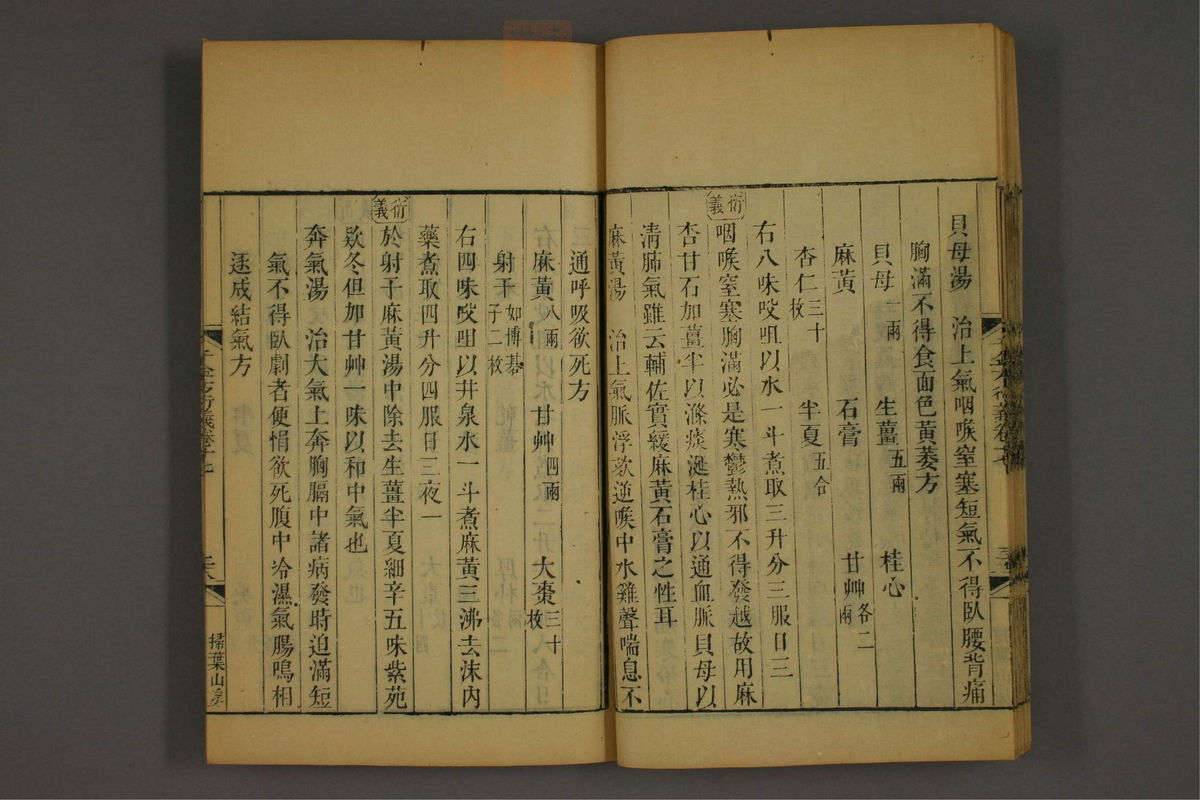 貝母湯　治上氣咽喉窒塞短氣不得臥腰背痛
胸滿不得食面色黃萎方
貝母一兩　生薑五兩　桂心
麻黃　石膏　甘艸各二兩
杏仁三十枚　半夏五合
右八味㕮咀以水一斗煮取三升分三服日三
衍義
咽喉窒塞胸滿必是寒鬱熱邪不得發越故用麻
杏甘石加薑半以滌痰涎桂心以通血脈貝母以
清肺氣雖云輔佐實緩麻黃石膏之性耳
麻黃湯　治上氣脈浮欬逆喉中水雞聲喘息不
通呼吸欲死方
右麻黃八兩　甘艸四兩　大棗三十枚
射干如博棊子二枚
右四味㕮咀以井泉水一斗煮麻黃三沸去沫內
藥煮取四升分四服日三夜一
衍義
於射干麻黃湯中除去生薑半夏細辛五味紫苑
欵冬但加甘艸一味以和中氣也
奔氣湯　治大氣上奔胸膈中諸病發時迫滿短
氣不得臥劇者便悁欲死腹中冷濕氣腸鳴相
逐成結氣方
千金方衍義卷十七
掃葉山房